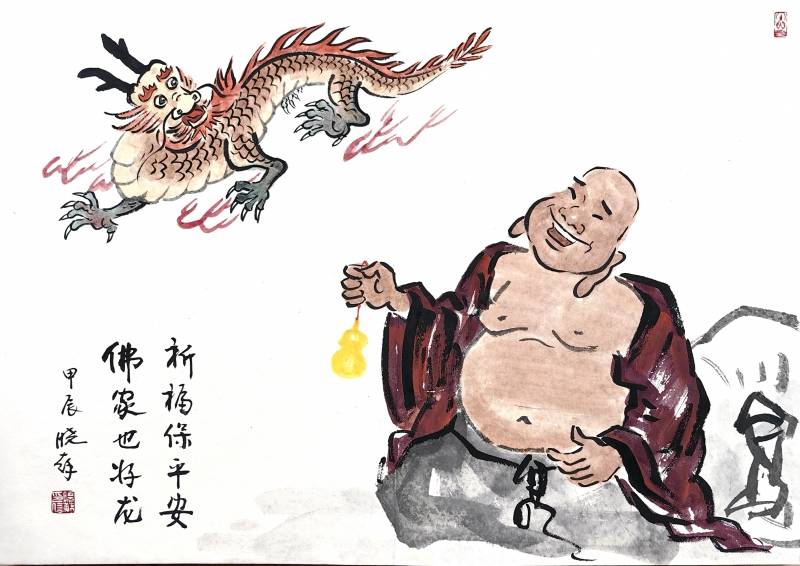 祈福保平安
佛家也好龙
甲辰 晓